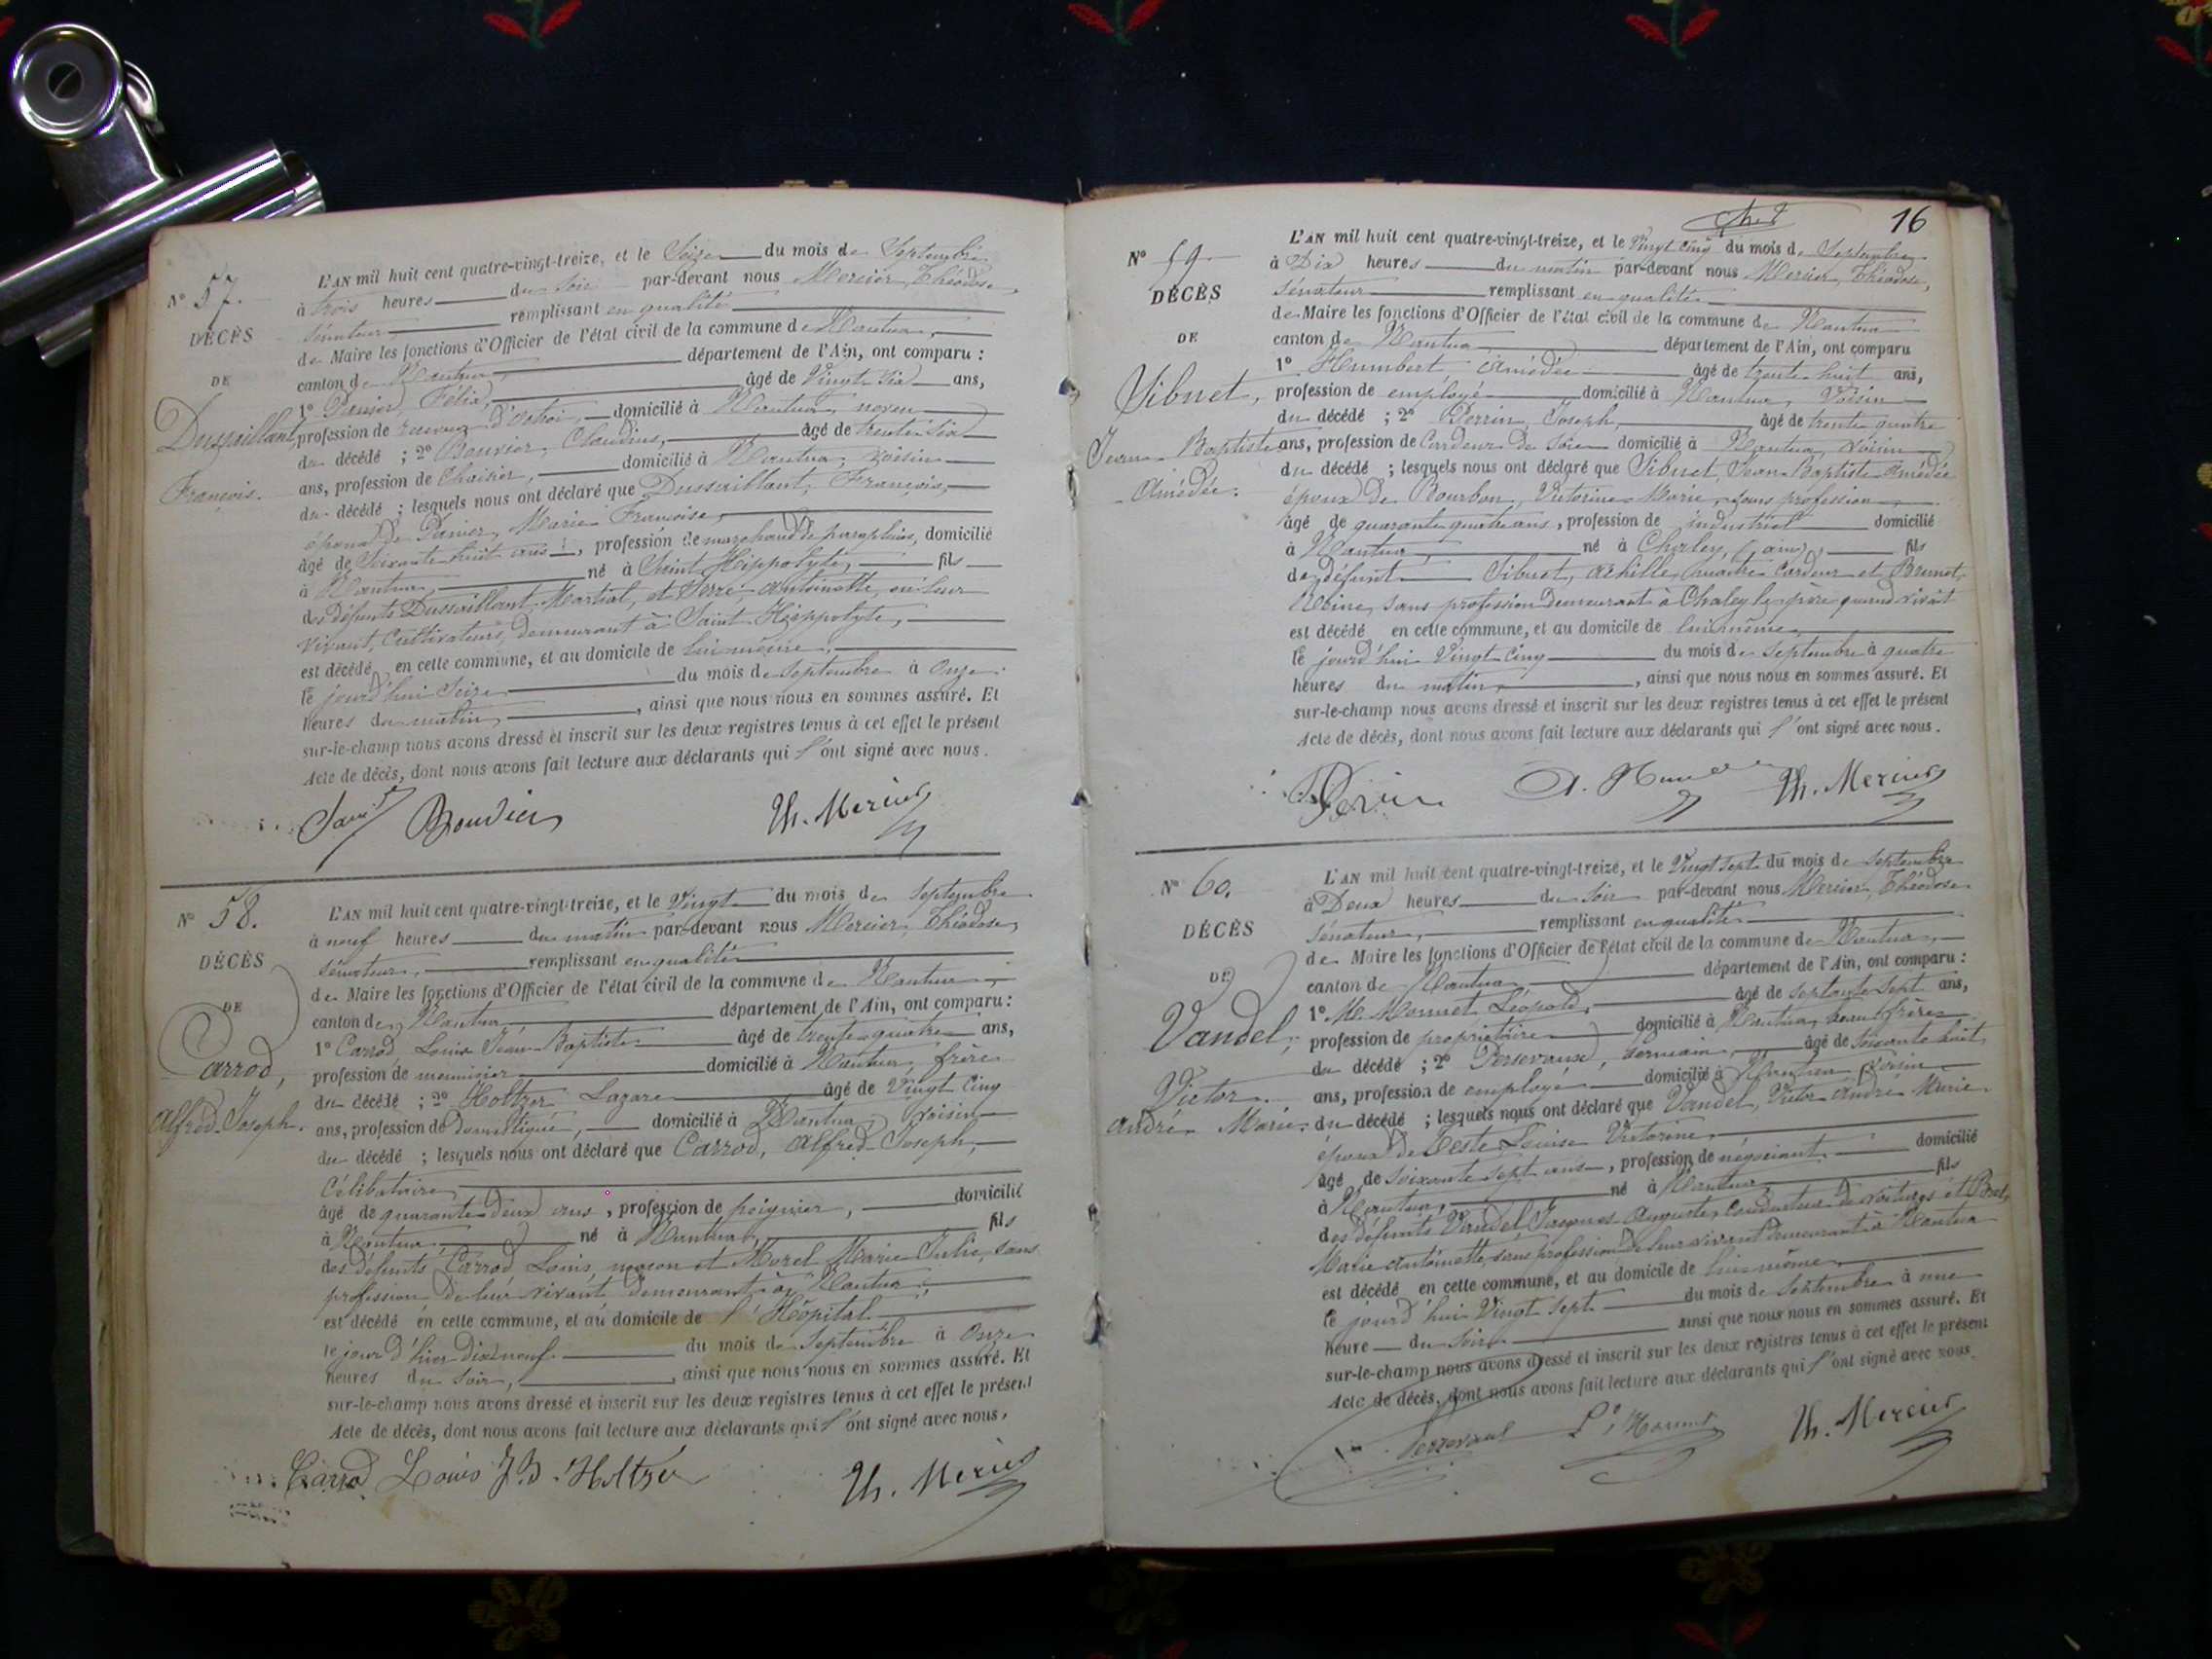 N° 57.
DÉCÈS
DE
Dussaillant,
François.
L'AN mil huit cent quatre-vingt-treize, et le Seize du mois de Septembre
à trois heures du soir par-devant nous Mercier, Théodose,
sénateur remplissant en qualité
de Maire les fonctions d'Officier de l'état civil de la commune de Nantua,
canton de Nantua, département de l'Ain, ont comparu :
1° Panier, Félix, âgé de Vingt six ans,
profession de receveur d'octroi, domicilié à Nantua, neveu
du décédé ; 2° Bouvier, Claudius, âgé de trente six
ans, profession de Chaisier, domicilié à Nantua, voisin
du décédé ; lesquels nous ont déclaré que Dussaillant, François,
époux de Panier, Marie Françoise,
âgé de Soixante huit ans, profession de marchand de parapluies, domicilié
à Nantua, né à Saint Hippolyte, fils
des défunts Dussaillant, Martial, et Serre Antoinette, en leur
vivant, Cultivateurs, demeurant à Saint Hippolyte,
est décédé en cette commune, et au domicile de lui même,
le jourd'hui Seize du mois de Septembre à Onze
heures du matin, ainsi que nous nous en sommes assuré. Et
sur-le-champ nous avons dressé et inscrit sur les deux registres tenus à cet effet le présent
Acte de décès, dont nous avons fait lecture aux déclarants qui l'ont signé avec nous.
Bouvier Th. Mercier
N° 58.
DÉCÈS
DE
Carrod,
Alfred Joseph.
L'AN mil huit cent quatre-vingt-treize, et le Vingt du mois de Septembre
à neuf heures du matin par-devant nous Mercier, Théodose,
sénateur, remplissant en qualité
de Maire les fonctions d'Officier de l'état civil de la commune de Nantua,
canton de Nantua, département de l'Ain, ont comparu :
1° Carrod, Louis Jean Baptiste âgé de trente quatre ans,
profession de menuisier domicilié à Nantua, frère
du décédé ; 2° Holtzer Lazare âgé de Vingt Cinq
ans, profession de domestique, domicilié à Nantua, voisin
du décédé ; lesquels nous ont déclaré que Carrod, Alfred Joseph,
Célibataire,
âgé de quarante deux ans, profession de peignier, domicilié
à Nantua, né à Nantua, fils
des défunts Carrod Louis, maçon et Morel Marie Julie, sans
profession de leur vivant demeurant à Nantua,
est décédé en cette commune, et au domicile de l'Hôpital
le jour d'hier dix neuf du mois de Septembre à Onze
heures du soir, ainsi que nous nous en sommes assuré. Et
sur-le-champ nous avons dressé et inscrit sur les deux registres tenus à cet effet le présent
Acte de décès, dont nous avons fait lecture aux déclarants qui l'ont signé avec nous.
Carrod Louis J.B. Holtzer Th. Mercier
16
N° 59
DÉCÈS
DE
Sibuet,
Jean Baptiste
Amédée.
L'AN mil huit cent quatre-vingt-treize, et le Vingt cinq du mois de Septembre
à Dix heures du matin par-devant nous Mercier, Théodose,
sénateur remplissant en qualité
de Maire les fonctions d'Officier de l'état civil de la commune de Nantua
canton de Nantua département de l'Ain, ont comparu
1° Humbert Amédée âgé de trente huit ans,
profession de employé domicilié à Nantua, Voisin
du décédé ; 2° Perrin, Joseph, âgé de trente quatre
ans, profession de Cardeur de Soie domicilié à Nantua, voisin
du décédé ; lesquels nous ont déclaré que Sibuet, Jean Baptiste Amédée
époux de Bourbon, Victorine Marie, sans profession,
âgé de quarante quatre ans, profession de industriel domicilié
à Nantua, né à Chaley, (Ain), fils
de défunt Sibuet, Achille, maître Cardeur et Brunet,
sans profession demeurant à Chaley le père quand vivait
est décédé en cette commune, et au domicile de lui même,
le jourd'hui Vingt cinq du mois de Septembre à quatre
heures du matin, ainsi que nous nous en sommes assuré. Et
sur-le-champ nous avons dressé et inscrit sur les deux registres tenus à cet effet le présent
Acte de décès, dont nous avons fait lecture aux déclarants qui l'ont signé avec nous.
Perrin Th. Mercier
N° 60.
DÉCÈS
DE
Vandel,
Victor
André Marie.
L'AN mil huit cent quatre-vingt-treize, et le Vingt sept du mois de Septembre
à Deux heures du soir par-devant nous Mercier, Théodose
sénateur, remplissant en qualité
de Maire les fonctions d'Officier de l'état civil de la commune de Nantua,
canton de Nantua département de l'Ain, ont comparu :
1° Léopold, âgé de septante sept ans,
profession de propriétaire domicilié à Nantua, beau frère
du décédé ; 2° Perrevaux, Germain, âgé de Soixante huit
ans, profession de employé domicilié à Nantua Voisin
du décédé ; lesquels nous ont déclaré que Vandel, Victor André Marie
époux de Louise Victorine,
âgé de soixante sept ans, profession de négociant domicilié
à Nantua, né à Nantua fils
des défunts Vandel Jacques Auguste, Conducteur de voitures et
Marie Antoinette, sans profession de leur vivant demeurant à Nantua
est décédé en cette commune, et au domicile de lui même
le jourd'hui Vingt sept du mois de Septembre à une
heure du soir ainsi que nous nous en sommes assuré. Et
sur-le-champ nous avons dressé et inscrit sur les deux registres tenus à cet effet le présent
Acte de décès, dont nous avons fait lecture aux déclarants qui l'ont signé avec nous.
Th. Mercier